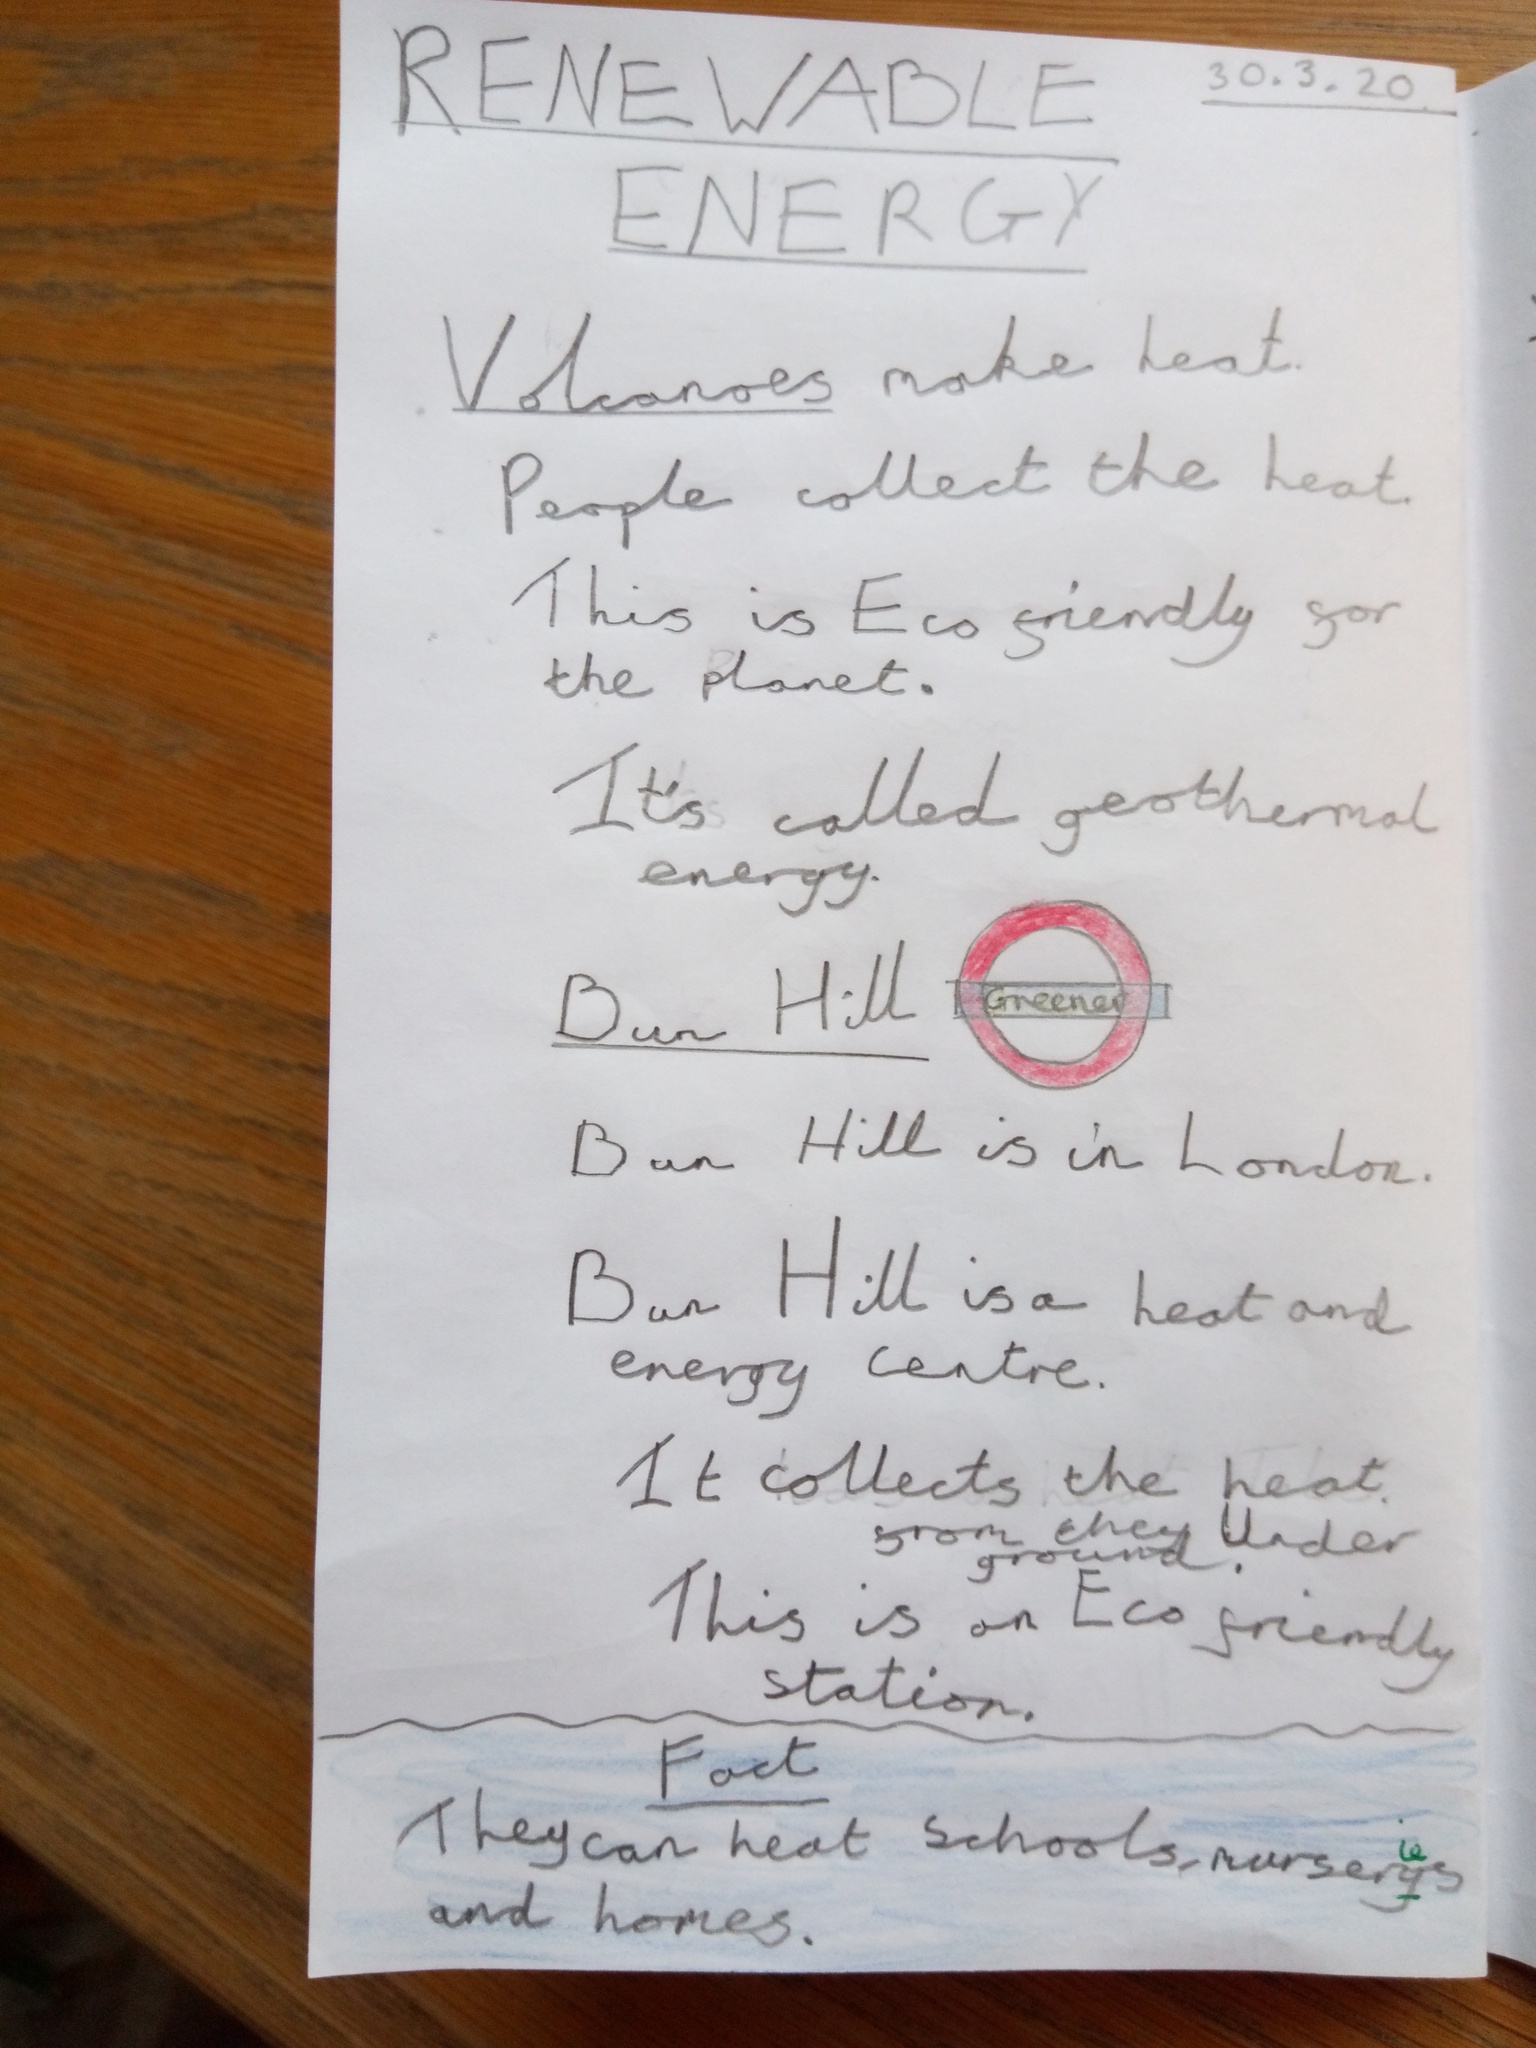 RENEWABLE
30.3.20
ENERGY
Volcanoes make heat.
People collect the heat.
This is Eco friendly for
the planet.
It's called geothermal
energy.
Bun Hill
Greener
Bun Hill is in London.
Bun Hill is a heat and
energy centre.
It collects the heat.
from they Under
ground.
This is an Eco friendly
station.
Fact
They can heat schools, nurserys
ie
and homes.